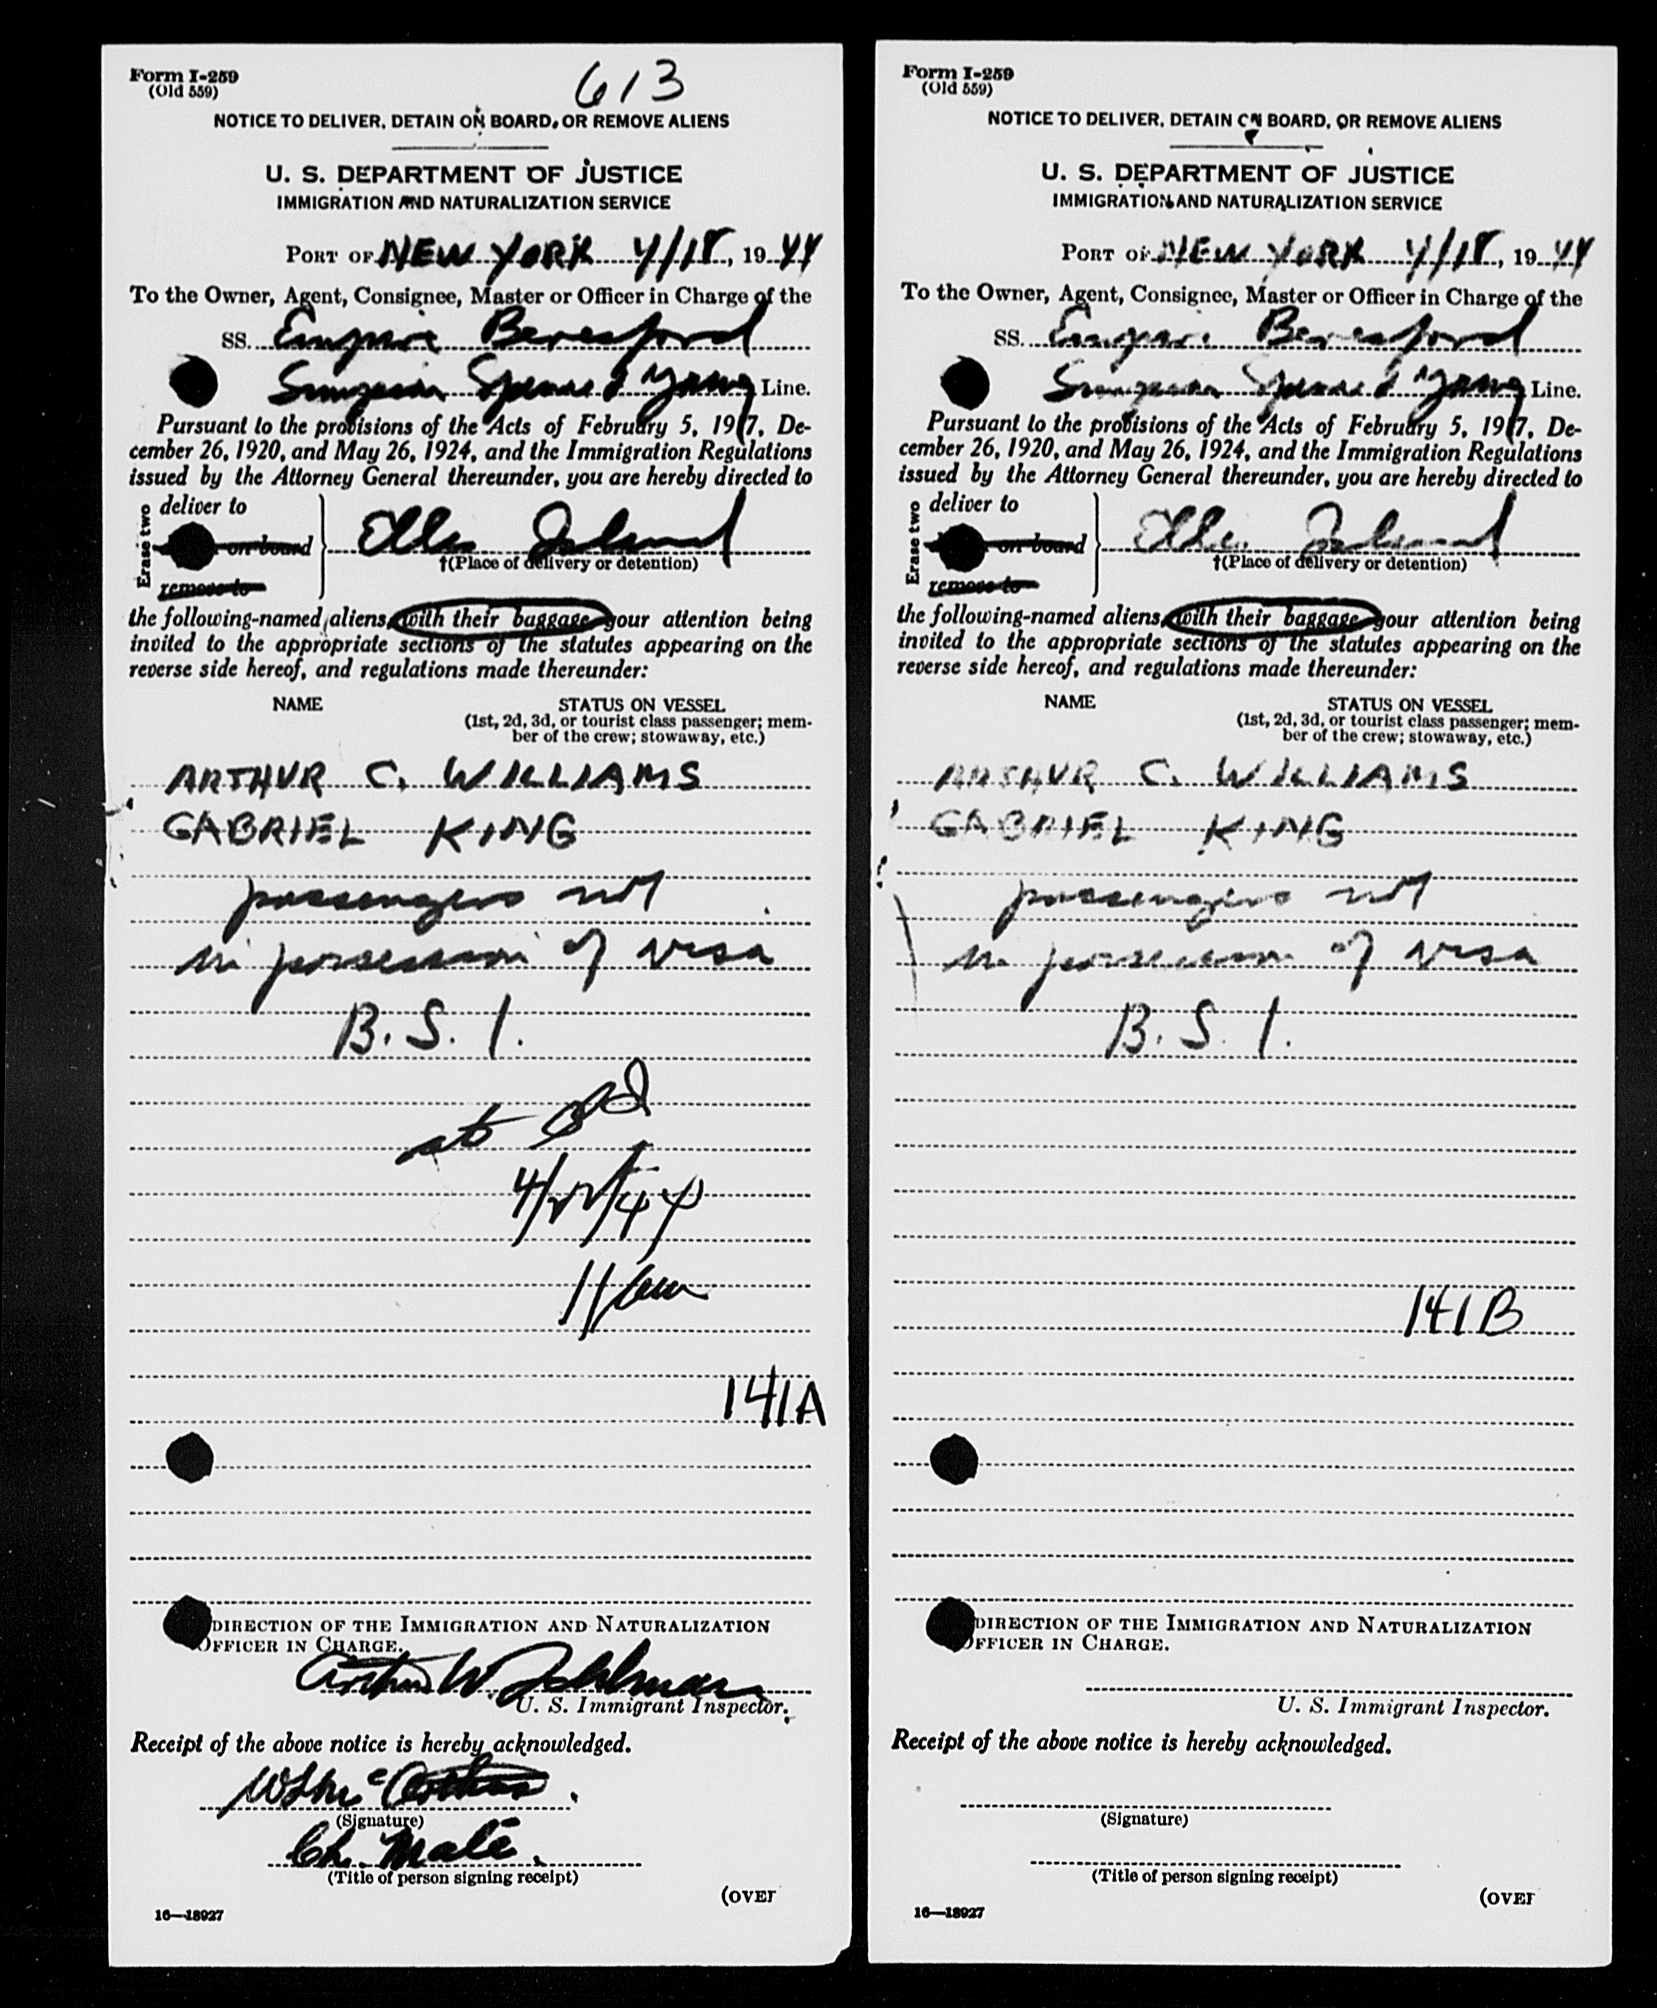 Form I-259
(Old 559)
613
NOTICE TO DELIVER, DETAIN ON BOARD, OR REMOVE ALIENS
U. S. DEPARTMENT OF JUSTICE
IMMIGRATION AND NATURALIZATION SERVICE
PORT OF NEW YORK 4/18, 1944
To the Owner, Agent, Consignee, Master or Officer in Charge of the
SS. Empire Beresford
Simpson Spence & Young Line.
Pursuant to the provisions of the Acts of February 5, 1917, De-
cember 26, 1920, and May 26, 1924, and the Immigration Regulations
issued by the Attorney General thereunder, you are hereby directed to
Erase two
deliver to
on board
remove to
Ellis Island
†(Place of delivery or detention)
the following-named aliens, with their baggage, your attention being
invited to the appropriate sections of the statutes appearing on the
reverse side hereof, and regulations made thereunder:
NAME STATUS ON VESSEL
(1st, 2d, 3d, or tourist class passenger; mem-
ber of the crew; stowaway, etc.)
ARTHUR C. WILLIAMS
GABRIEL KING
passengers not
in possession of visa
B. S. I.
4/22/44
11 am
141A
DIRECTION OF THE IMMIGRATION AND NATURALIZATION
OFFICER IN CHARGE.
Arthur W.
U. S. Immigrant Inspector.
Receipt of the above notice is hereby acknowledged.
(Signature)
Ch. Mate.
(Title of person signing receipt)
(OVER
16—18927
Form I-259
(Old 559)
NOTICE TO DELIVER, DETAIN ON BOARD, OR REMOVE ALIENS
U. S. DEPARTMENT OF JUSTICE
IMMIGRATION AND NATURALIZATION SERVICE
PORT OF NEW YORK 4/18, 1944
To the Owner, Agent, Consignee, Master or Officer in Charge of the
SS. Empire Beresford
Simpson Spence & Young Line.
Pursuant to the provisions of the Acts of February 5, 1917, De-
cember 26, 1920, and May 26, 1924, and the Immigration Regulations
issued by the Attorney General thereunder, you are hereby directed to
Erase two
deliver to
on board
remove to
Ellis Island
†(Place of delivery or detention)
the following-named aliens, with their baggage, your attention being
invited to the appropriate sections of the statutes appearing on the
reverse side hereof, and regulations made thereunder:
NAME STATUS ON VESSEL
(1st, 2d, 3d, or tourist class passenger; mem-
ber of the crew; stowaway, etc.)
ARTHUR C. WILLIAMS
GABRIEL KING
passengers not
in possession of visa
B. S. I.
141B
DIRECTION OF THE IMMIGRATION AND NATURALIZATION
OFFICER IN CHARGE.
U. S. Immigrant Inspector.
Receipt of the above notice is hereby acknowledged.
(Signature)
(Title of person signing receipt)
(OVER
16—18927